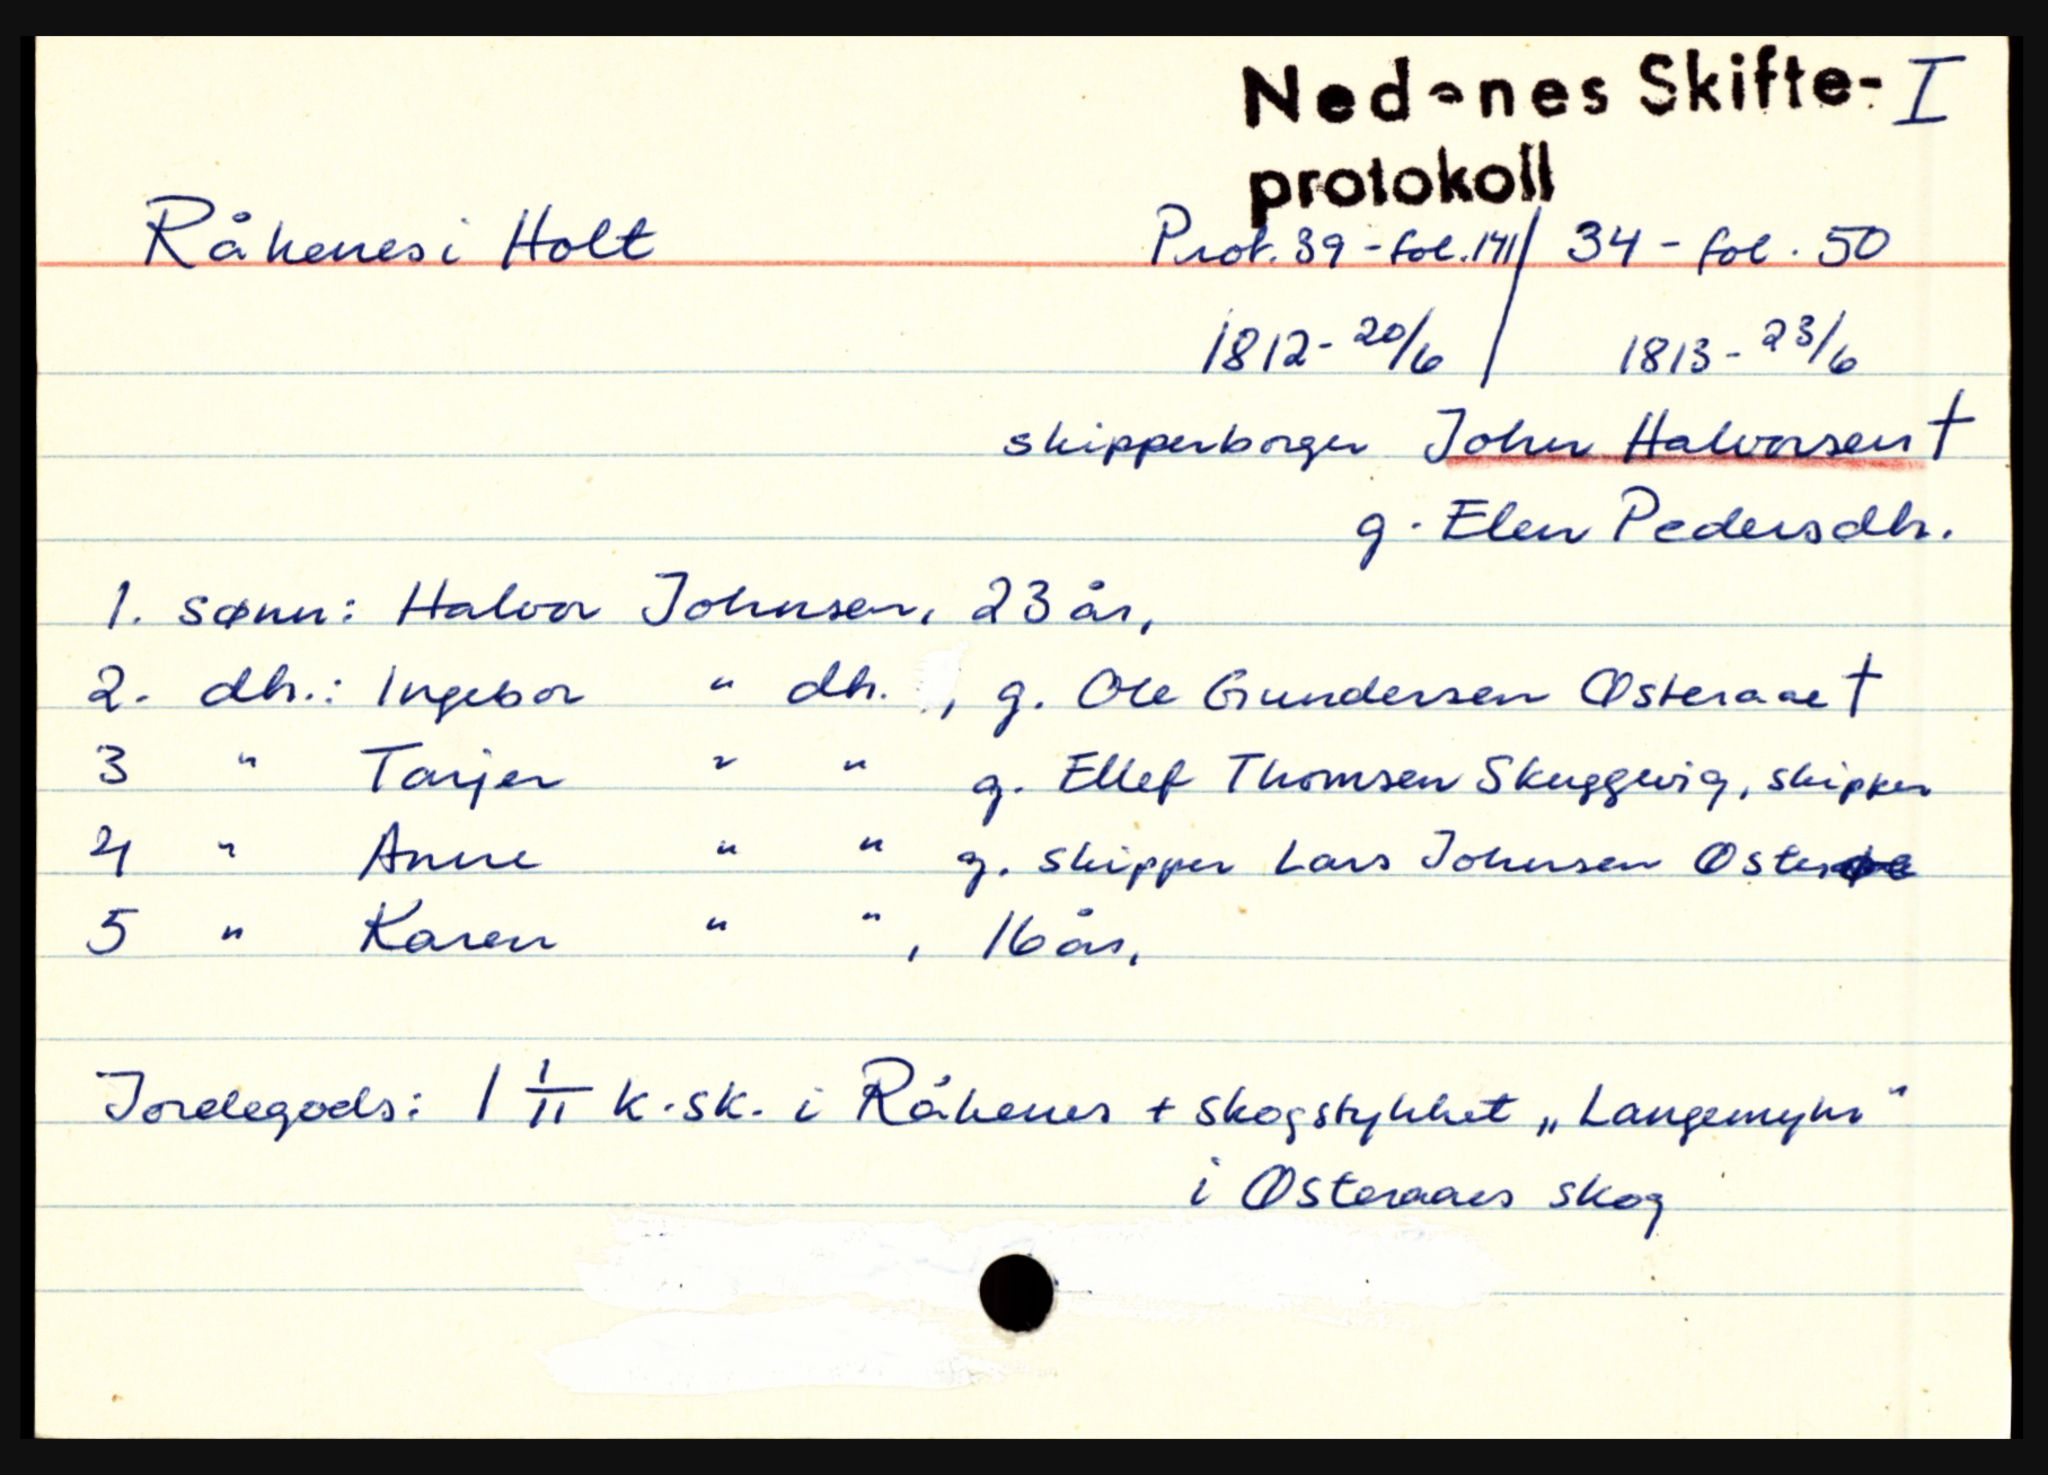 Nedenes Skifte- I
protokoll
Råkenes i Holt Prot. 39 - fol. 141 / 34 - fol. 50
1812 - 20/6 / 1813 - 23/6
skipperborger John Halvorsen †
g. Elen Pedersdtr.
1. sønn: Halvor Johnsen, 23 år,
2. dtr.: Ingebor " dtr. , g. Ole Gundersen Osteraae †
3 " Tarjer " " g. Ellef Thomsen Skuggevig, skipper
4 " Anne " " g. skipper Lars Johnsen
5 " Karen " " , 16 år,
Jordegods: 1 1/11 k.sk. i Råkenes + skogstykket „Langemyhr"
i Osteraaes skog